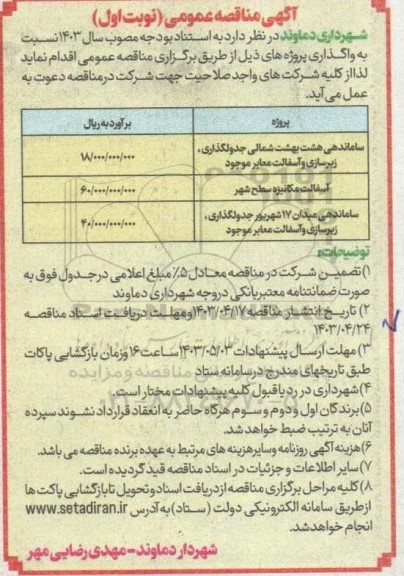 آگهی مناقصه عمومی (نوبت اول)
شهرداری دماوند در نظر دارد به استناد بودجه مصوب سال ۱۴۰۳ نسبت
به واگذاری پروژه های ذیل از طریق برگزاری مناقصه عمومی اقدام نماید
لذا از کلیه شرکت های واجد صلاحیت جهت شرکت در مناقصه دعوت به
عمل می آید.
پروژه برآورد به ریال
ساماندهی هشت بهشت شمالی جدولگذاری،
زیرسازی و آسفالت معابر موجود ۱۸/۰۰۰/۰۰۰/۰۰۰
آسفالت مکانیزه سطح شهر ۶۰/۰۰۰/۰۰۰/۰۰۰
ساماندهی میدان ۱۷ شهریور جدولگذاری،
زیرسازی و آسفالت معابر موجود ۴۰/۰۰۰/۰۰۰/۰۰۰
توضیحات:
۱) تضمین شرکت در مناقصه معادل ۵٪ مبلغ اعلامی در جدول فوق به
صورت ضمانتنامه معتبر بانکی در وجه شهرداری دماوند
۲) تاریخ انتشار مناقصه ۱۴۰۳/۰۴/۱۷ و مهلت دریافت اسناد مناقصه
۱۴۰۳/۰۴/۲۴
۳) مهلت ارسال پیشنهادات ۱۴۰۳/۰۵/۰۳ ساعت ۱۶ و زمان بازگشایی پاکات
طبق تاریخهای مندرج در سامانه ستاد
۴) شهرداری در رد یا قبول کلیه پیشنهادات مختار است.
۵) برندگان اول و دوم و سوم هرگاه حاضر به انعقاد قرارداد نشوند سپرده
آنان به ترتیب ضبط خواهد شد.
۶) هزینه آگهی روزنامه و سایر هزینه های مرتبط به عهده برنده مناقصه می باشد.
۷) سایر اطلاعات و جزئیات در اسناد مناقصه قید گردیده است.
۸) کلیه مراحل برگزاری مناقصه از دریافت اسناد و تحویل تا بازگشایی پاکت ها
از طریق سامانه الکترونیکی دولت (ستاد) به آدرس www.setadiran.ir
انجام خواهد شد.
شهردار دماوند - مهدی رضایی مهر